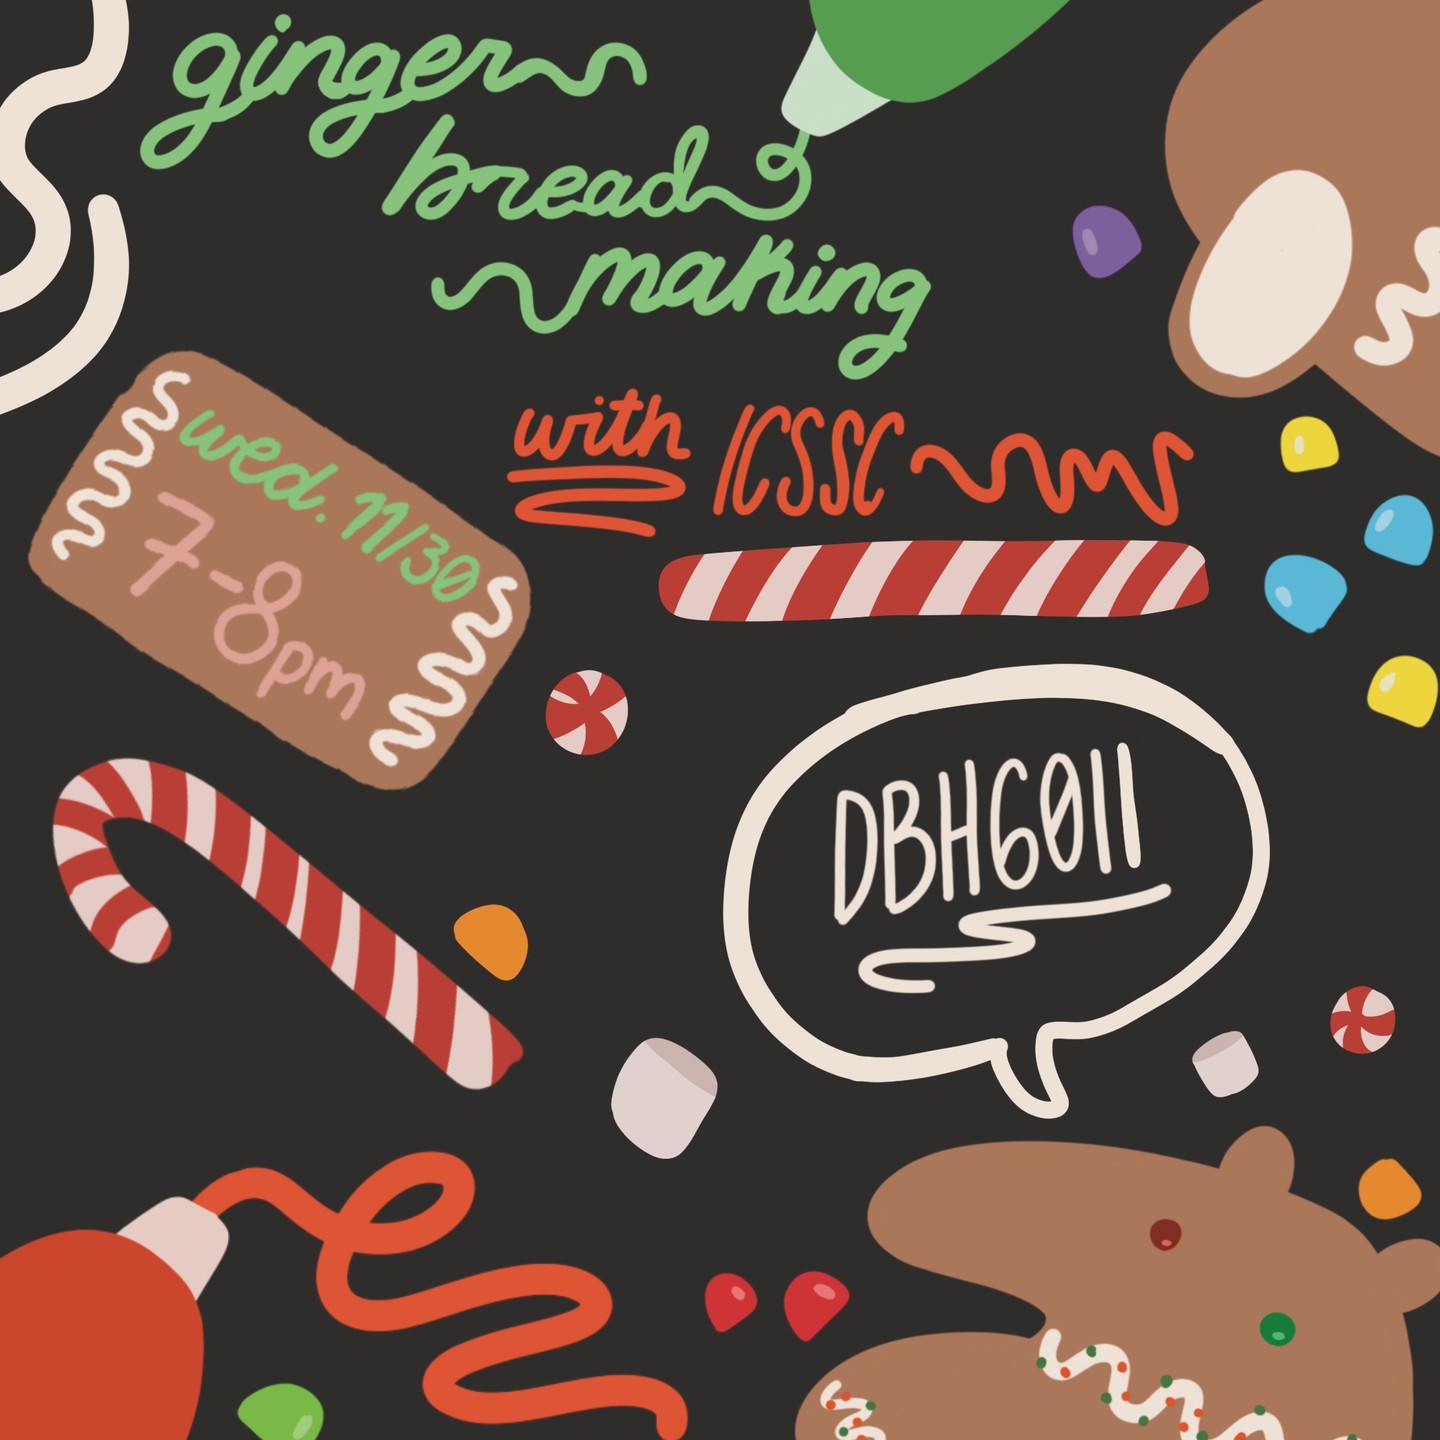 ginger
bread
making
with ICSSC
wed. 11/30
7-8pm
DBH6011